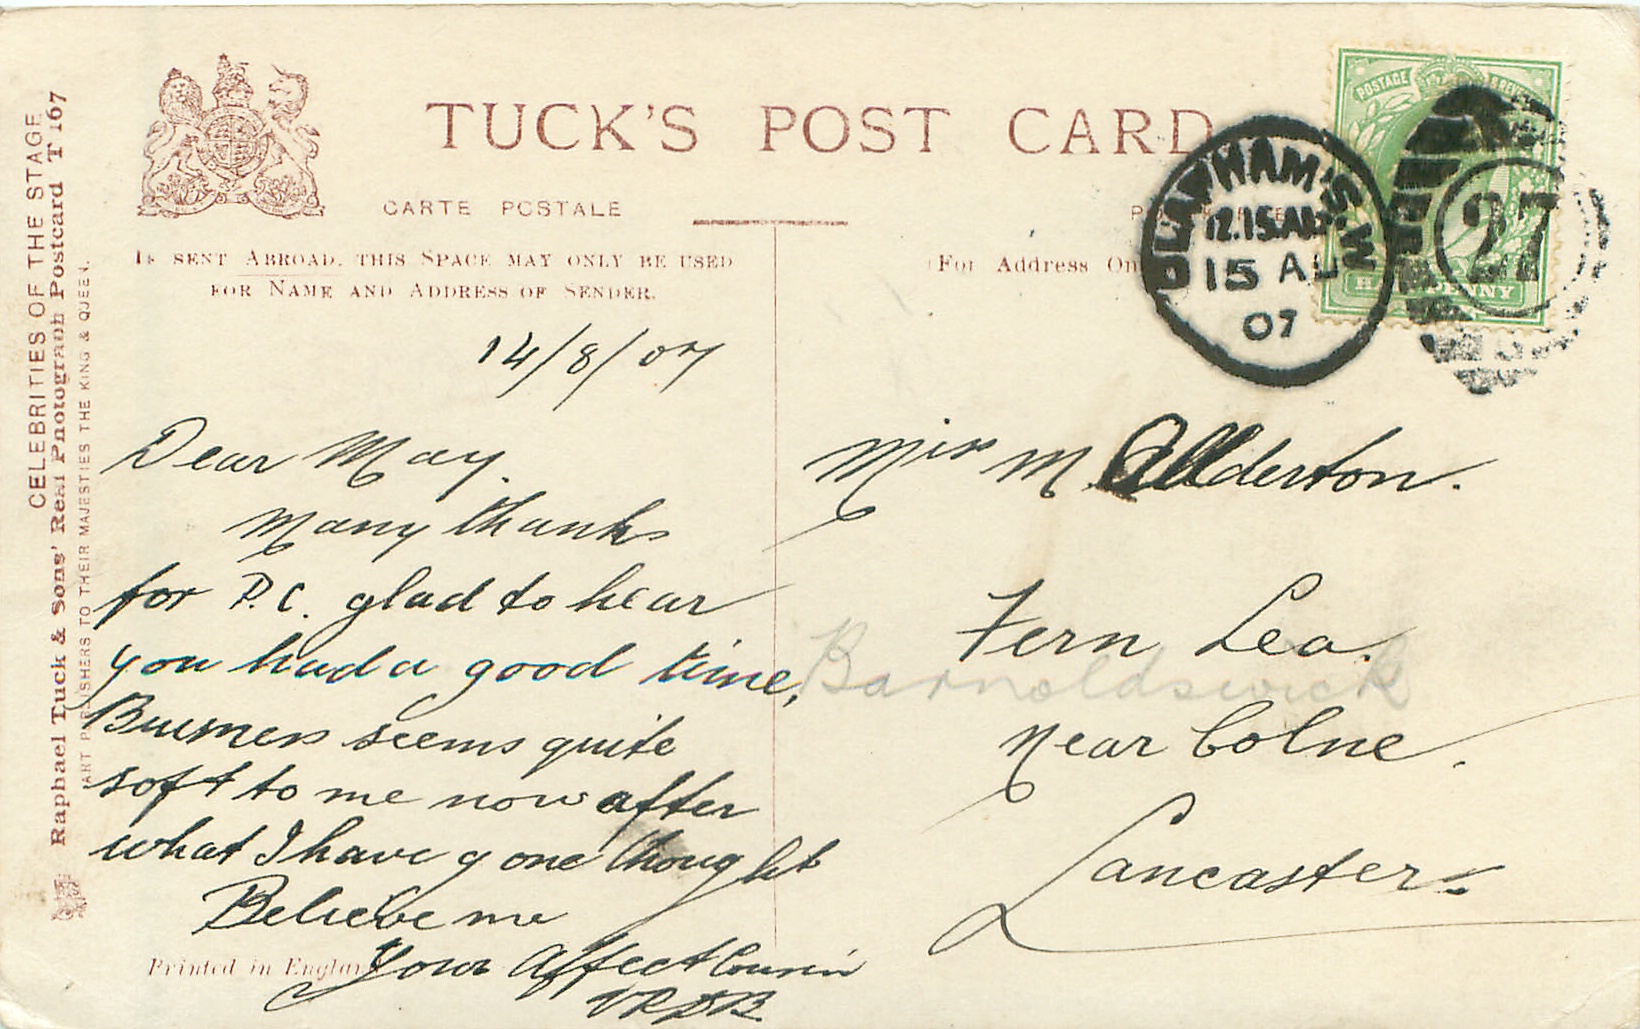 CELEBRITIES OF THE STAGE
Raphael Tuck & Sons' Real Photograph Postcard T 167
ART PUBLISHERS TO THEIR MAJESTIES THE KING & QUEEN.
TUCK'S POST CARD
CARTE POSTALE
IF SENT ABROAD, THIS SPACE MAY ONLY BE USED
FOR NAME AND ADDRESS OF SENDER.
(For Address On
POSTAGE
HALFPENNY
WHAM'S.W
12.15.AM
15 AU
07
27
14/8/07
Dear May.
Many thanks
for P.C. glad to hear
you had a good time,
Business seems quite
soft to me now after
what I have gone thought
Believe me
Your Affect Cousin
Printed in England
Miss M. Allderton.
Fern Lea.
Barnoldswick
Near Colne.
Lancaster